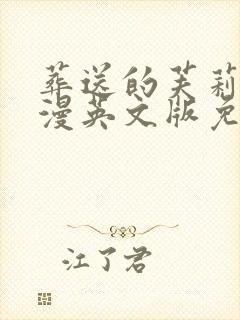 葬送的芙莉
漫英文版免
江了君